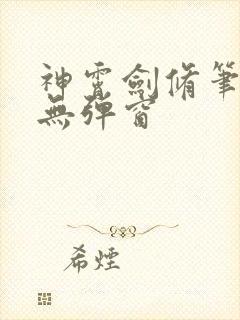 神霄劍脩筆
無彈窗
希煙